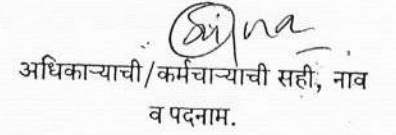 अधिकाऱ्याची/कर्मचाऱ्याची सही, नाव
व पदनाम.